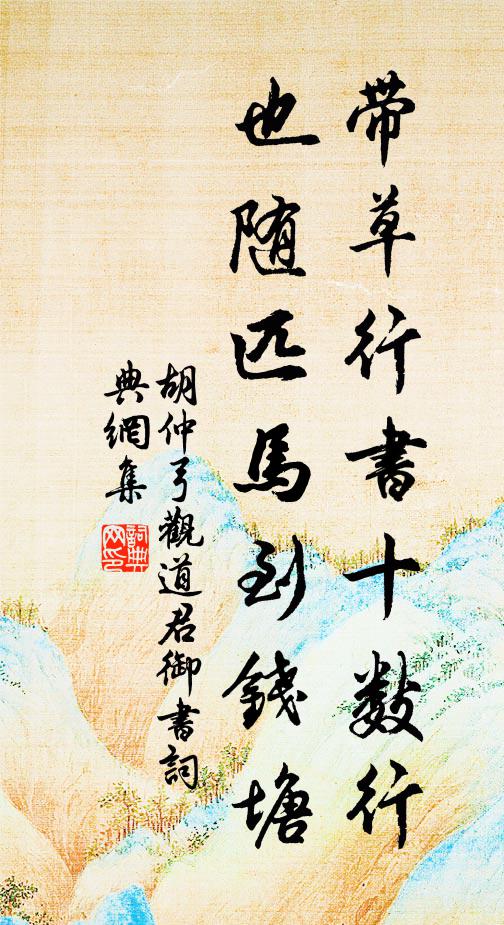 带草行书十数行
也随匹馬到錢塘
胡仲弓觀道君御書詞
典網集
詞典網印